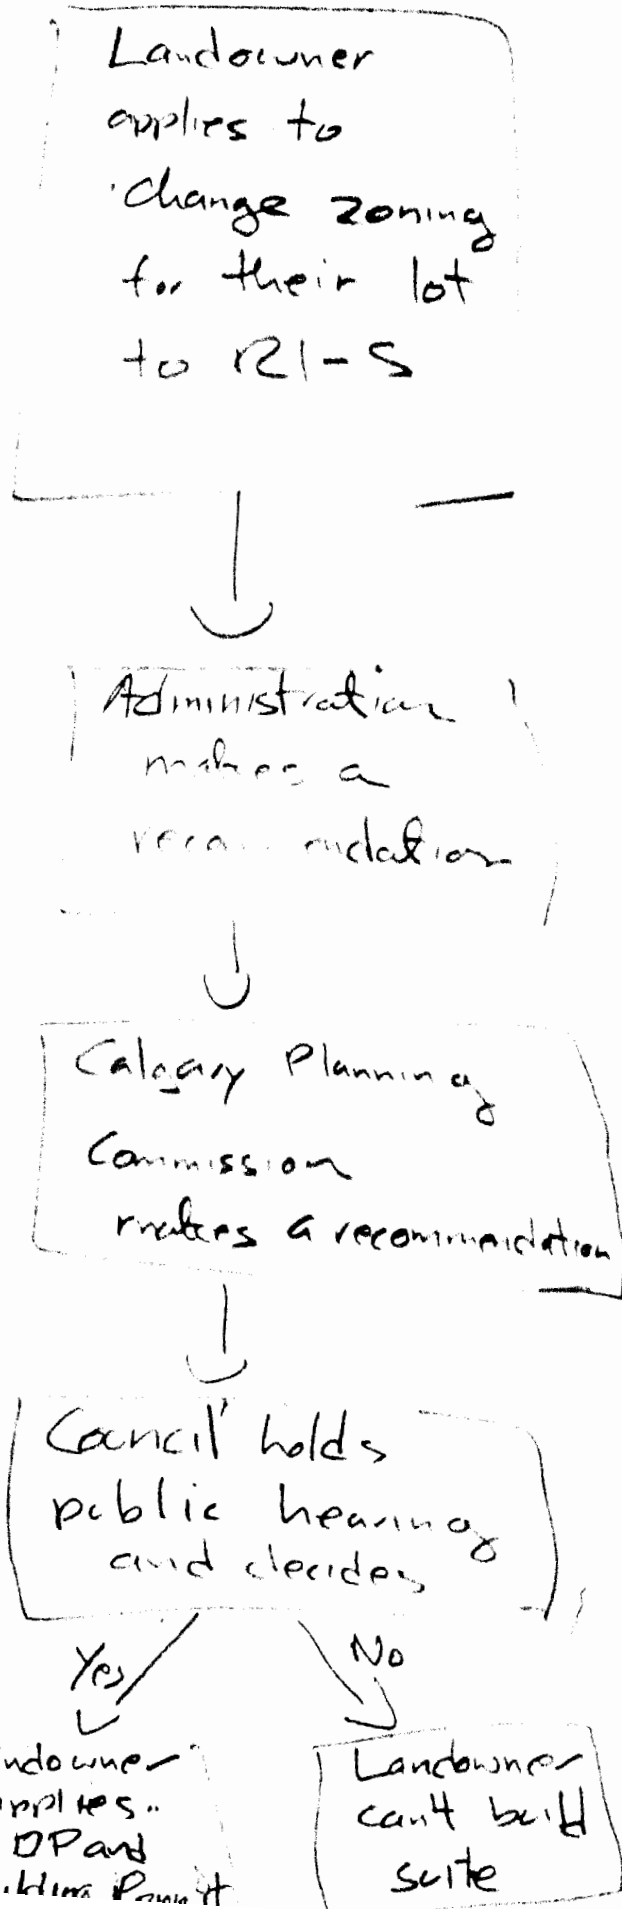 Landowner
applies to
change zoning
for their lot
to R1-S
Administration
makes a
recommendation
Calgary Planning
Commission
makes a recommendation
Council holds
public hearing
and decides
Yes
No
ndowner
pplies
DP and
ilding Permit
Landowner
can't build
suite